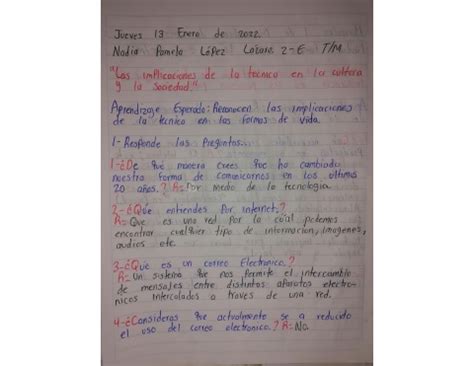 Jueves 13 Enero de 2022.
Nadia Pamela López Lázaro. 2-E T/M
"Las implicaciones de la tecnica en la cultura
y la Sociedad."
Aprendizaje Esperado: Reconocen las implicaciones
de la tecnica en las formas de vida.
1- Responde las Preguntas...
1-¿De que manera crees que ha cambiado
nuestra forma de comunicarnos en los ultimos
20 años.? R= Por medio de la tecnologia.
2-¿Qúe entiendes Por internet.?
R= Que es una red por la cúal podemos
encontrar cualquier tipo de informacion, imagenes,
audios etc.
3-¿Qúe es un correo Electronico.?
R= Un sistema que nos Permite el intercambio
de mensajes entre distintos aparatos electro-
nicos intercalados a traves de una red.
4-¿Consideras que actualmente se a reducido
el uso del correo electronico.? R= No.